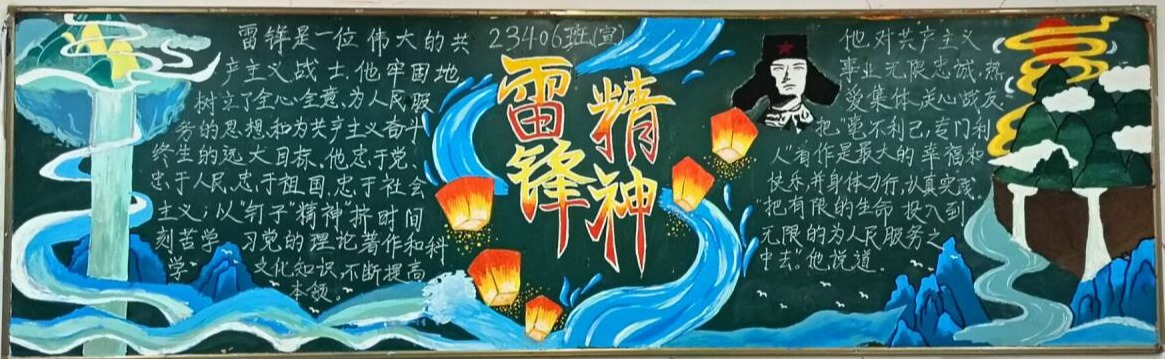 雷锋是一位伟大的共
产主义战士,他牢固地
树立了全心全意,为人民服
务的思想,和为共产主义奋斗
终生的远大目标。他忠于党、
忠于人民,忠于祖国,忠于社会
主义;以"钉子"精神"挤时间
刻苦学 习党的理论著作和科
学 文化知识,不断提高
本领。
23406班(宣)
雷锋
精神
他对共产主义
事业无限忠诚,热
爱集体,关心战友.
把"毫不利己,专门利
人"看作是最大的幸福和
快乐,并身体力行,认真实践.
"把有限的生命 投入到
无限的为人民服务之
中去。"他说道.